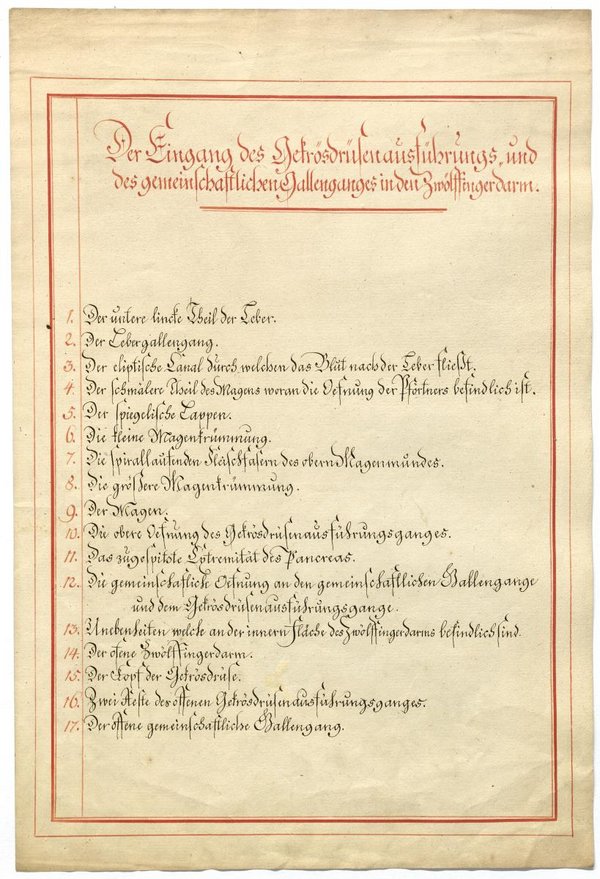 Der Eingang des Gekrösdrüsenausführungs- und
des gemeinschaftlichen Gallenganges in den Zwölffingerdarm.
1. Der untere lincke Theil der Leber.
2. Der Lebergallengang.
3. Der eliptische Canal durch welchen das Blut nach der Leber fließt.
4. Der schmälere Theil des Magens woran die Oefnung der Pförtners befindlich ist.
5. Der spiegelische Lappen.
6. Die kleine Magenkrümmung.
7. Die spirallaufenden Fleischfasern des obern Magenmundes.
8. Die größere Magenkrümmung.
9. Der Magen.
10. Die obere Oefnung des Gekrösdrüsenausführungsganges.
11. Das zugespitzte Extremität des Pancreas.
12. Die gemeinschaftliche Oefnung an den gemeinschaftlichen Gallengange
und dem Gekrösdrüsenausführungsgange.
13. Unebenheiten welche an der innern Fläche des Zwölffingerdarms befindlich sind.
14. Der ofene Zwölffingerdarm.
15. Der Kopf der Gekrösdrüse.
16. Zwei Aeste des offenen Gekrösdrüsenausführungsganges.
17. Der offene gemeinschaftliche Gallengang.